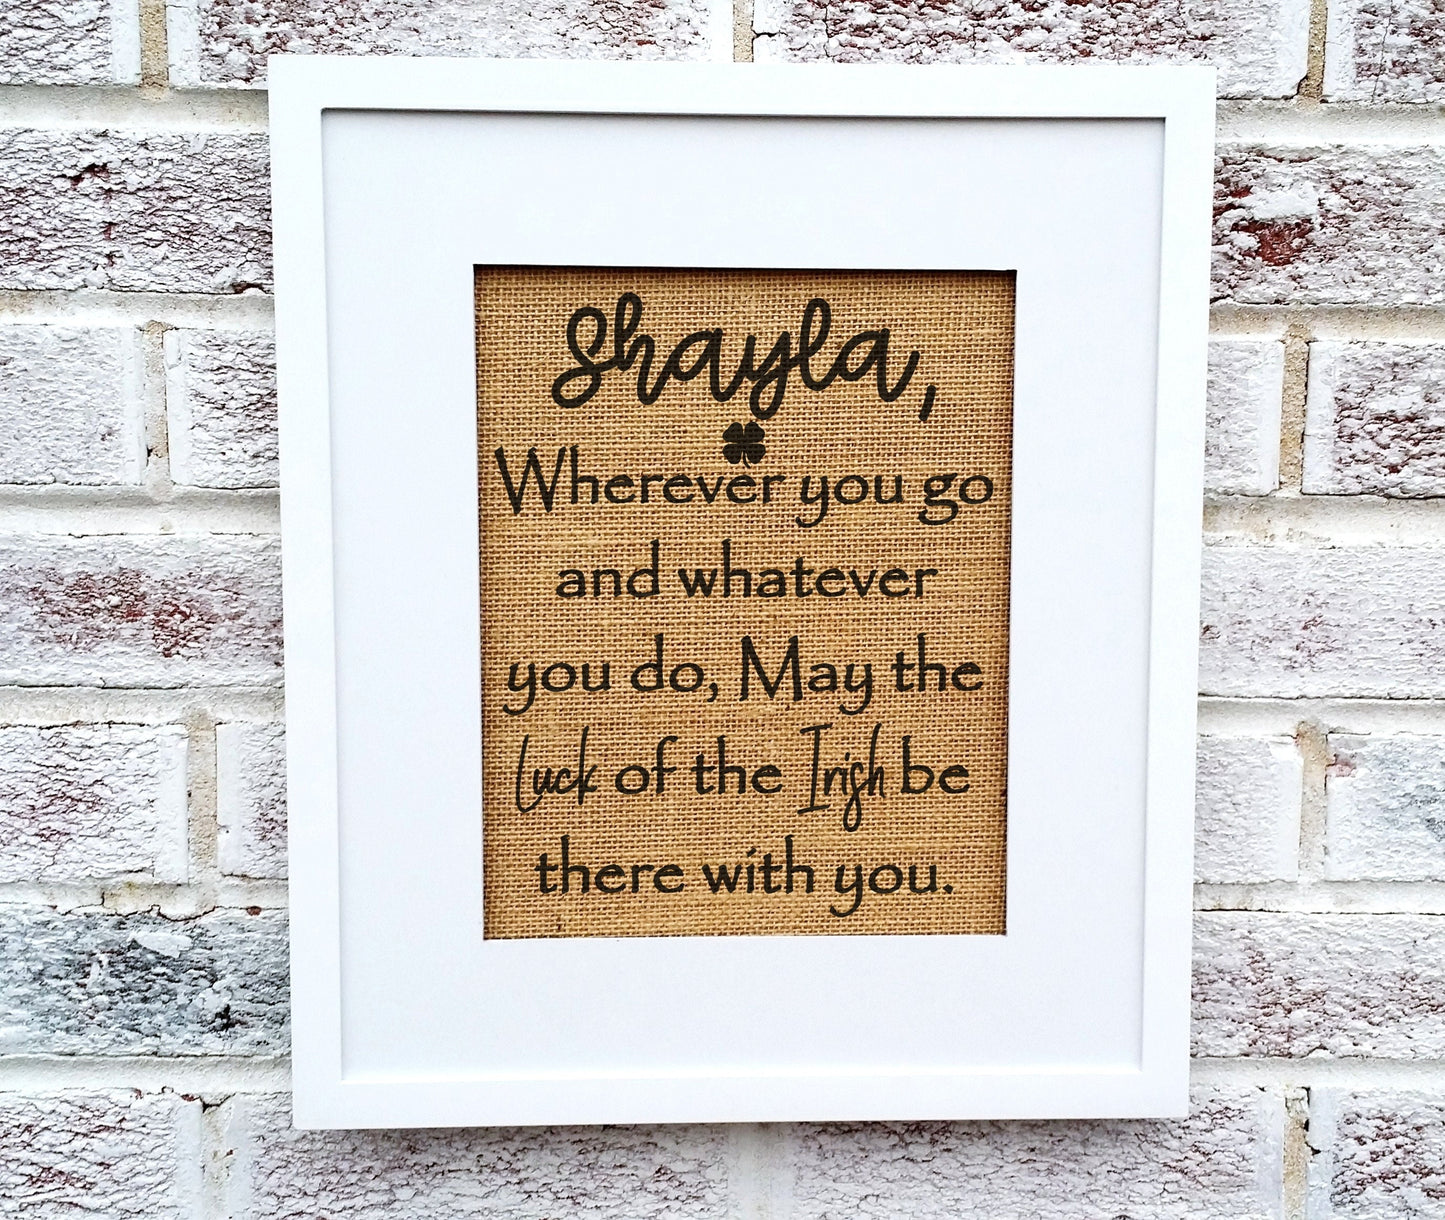 Shayla,
Wherever you go
and whatever
you do, May the
Luck of the Irish be
there with you.